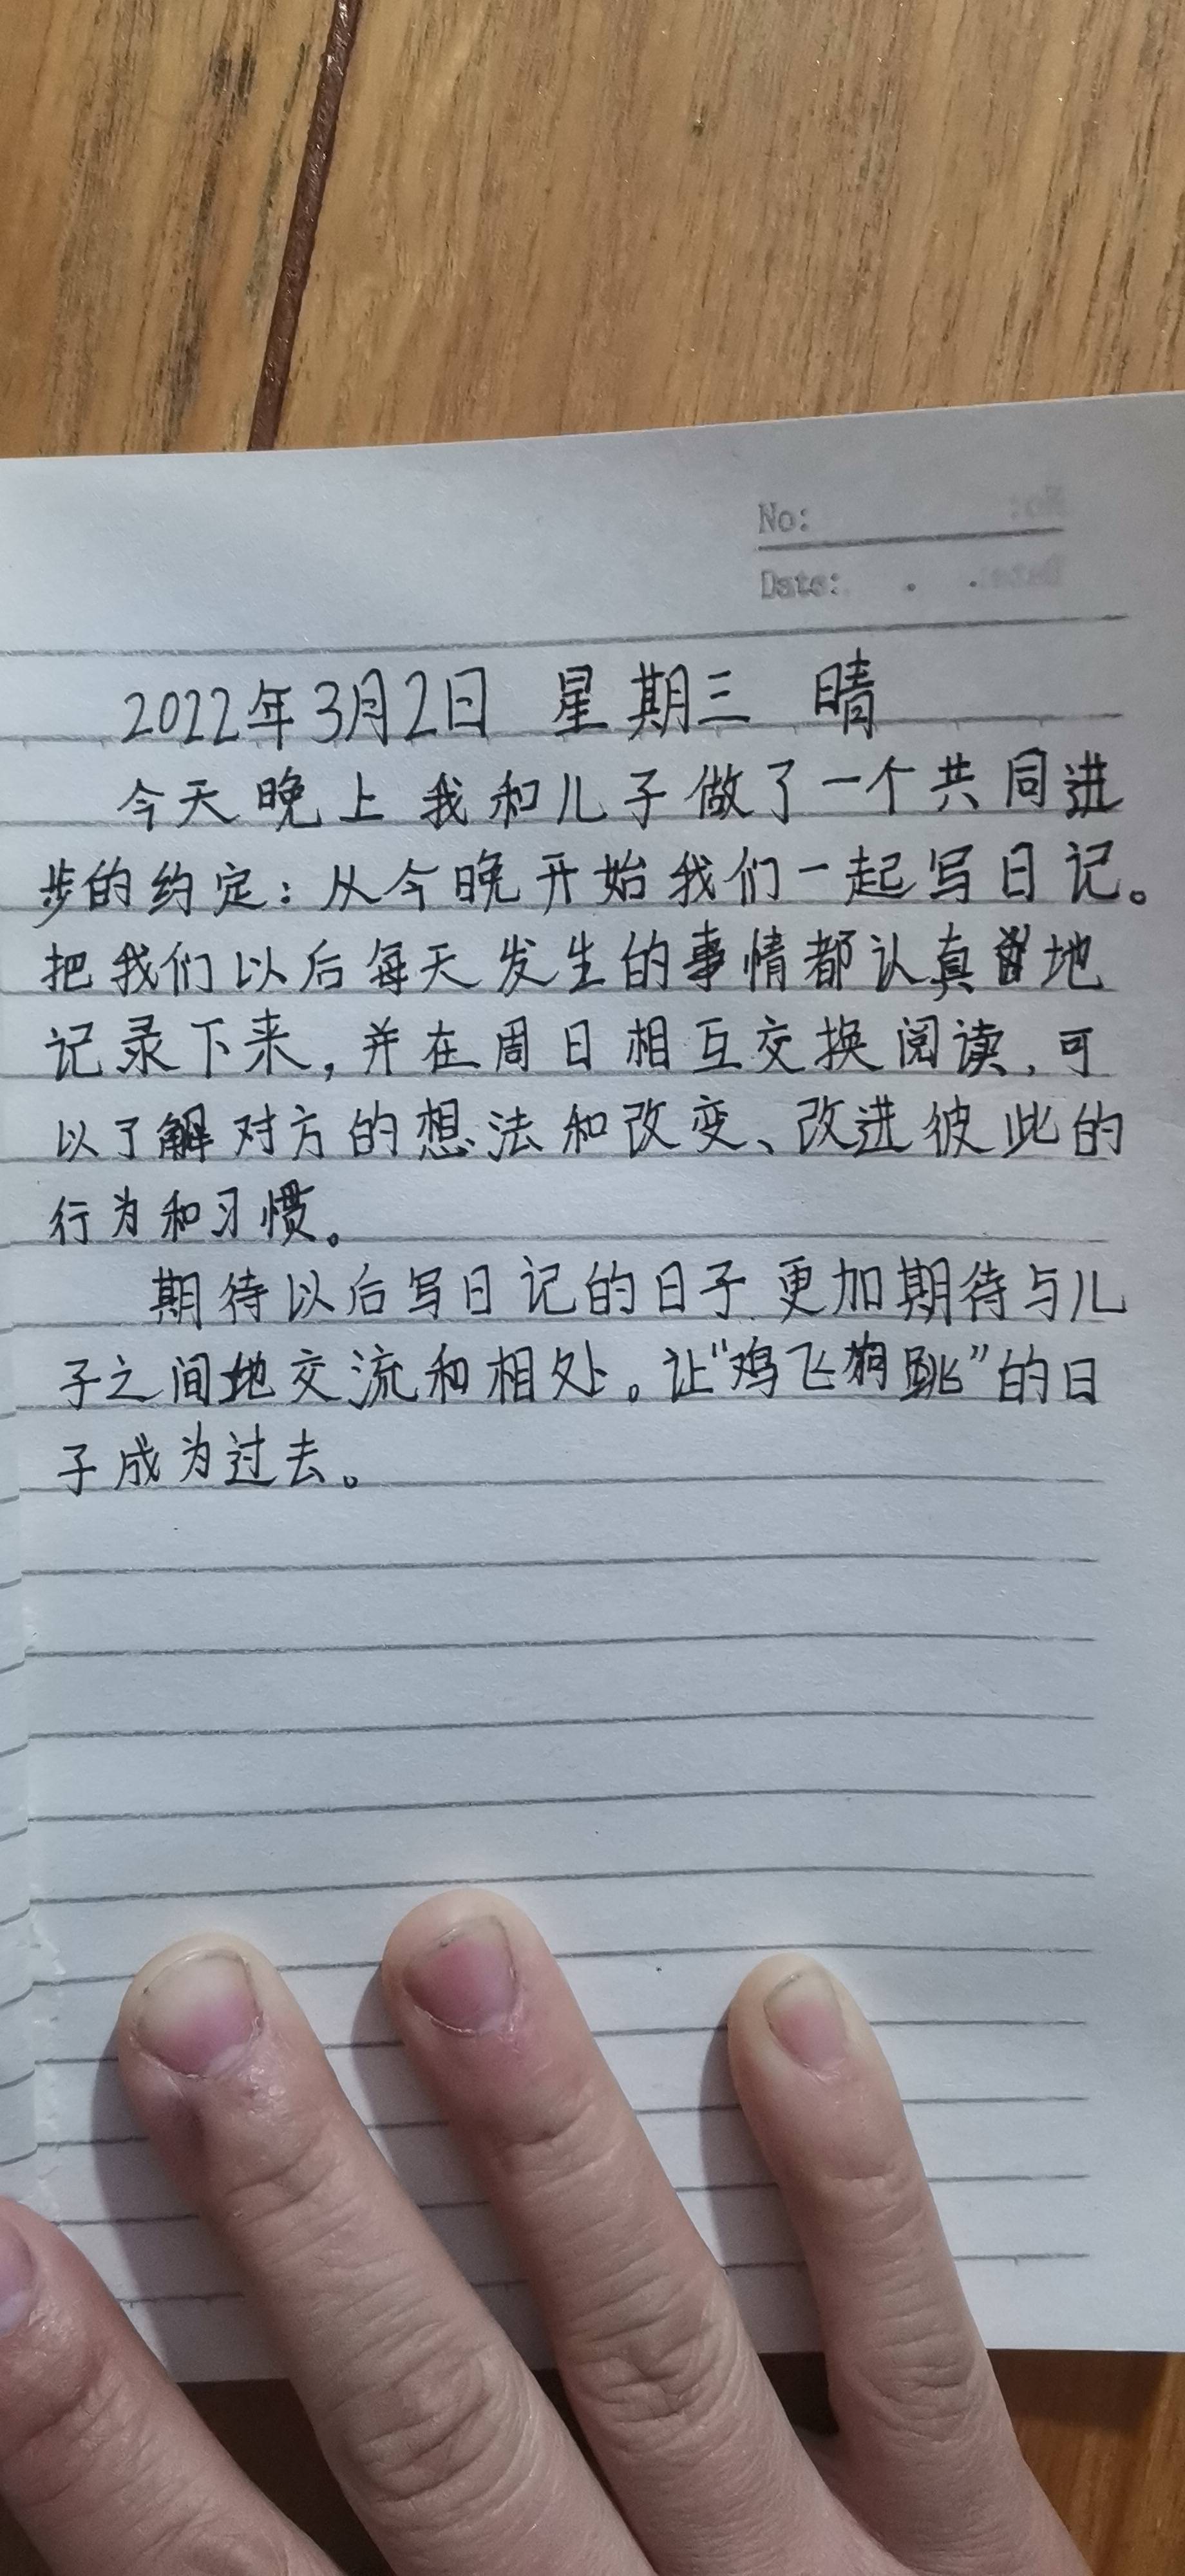 No:
Date: . .
2022年3月2日 星期三 晴
今天晚上我和儿子做了一个共同进
步的约定：从今晚开始我们一起写日记。
把我们以后每天发生的事情都认真地
记录下来，并在周日相互交换阅读，可
以了解对方的想法和改变、改进彼此的
行为和习惯。
期待以后写日记的日子 更加期待与儿
子之间地交流和相处。让“鸡飞狗跳”的日
子成为过去。